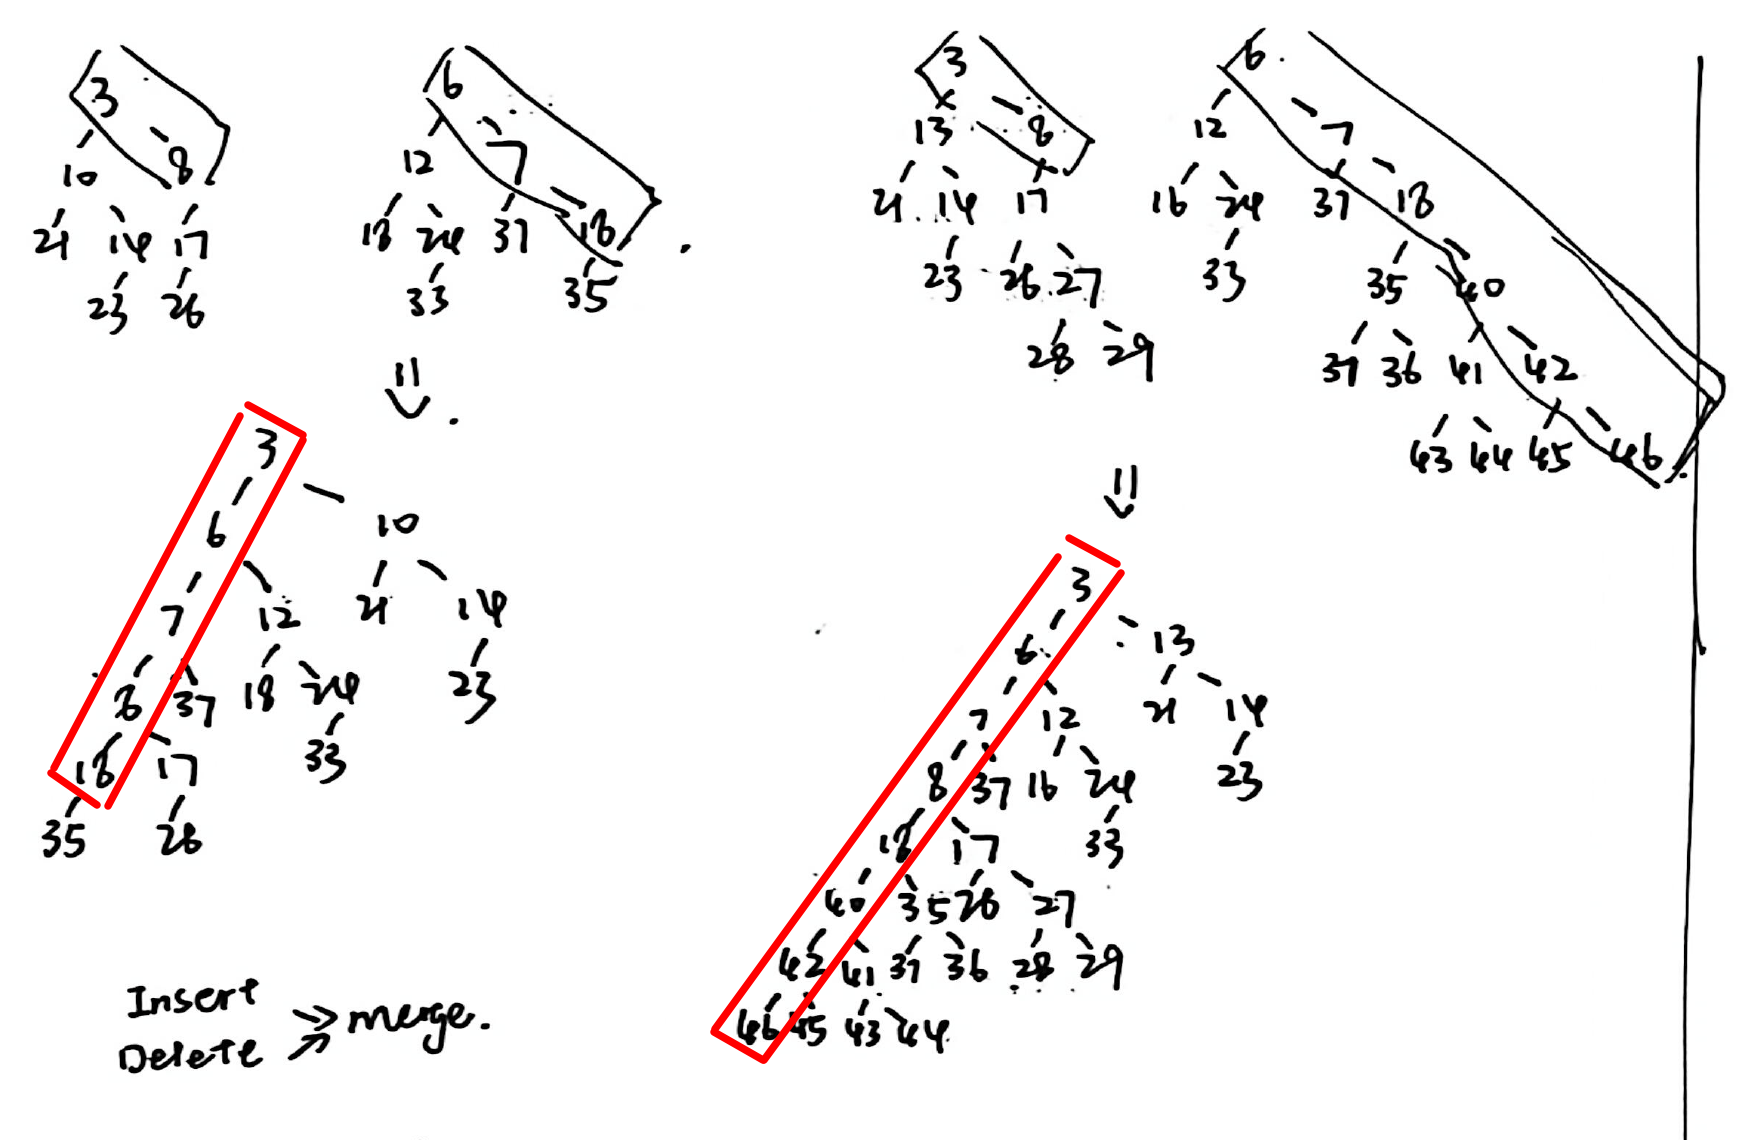 3
10 8
21 14 17
23 26
6
12 7
18 24 37 18
33 35
3
13 8
21 14 17
23 26 27
28 29
6
12 7
16 24 37 18
33 35 40
37 36 41 42
43 44 45 46
3
6 10
7 12 21 14
8 37 18 24 23
18 17 33
35 26
3
6 13
7 12 21 14
8 37 16 24 23
18 17 33
40 35 26 27
42 41 37 36 28 29
46 45 43 44
Insert
Delete
merge.